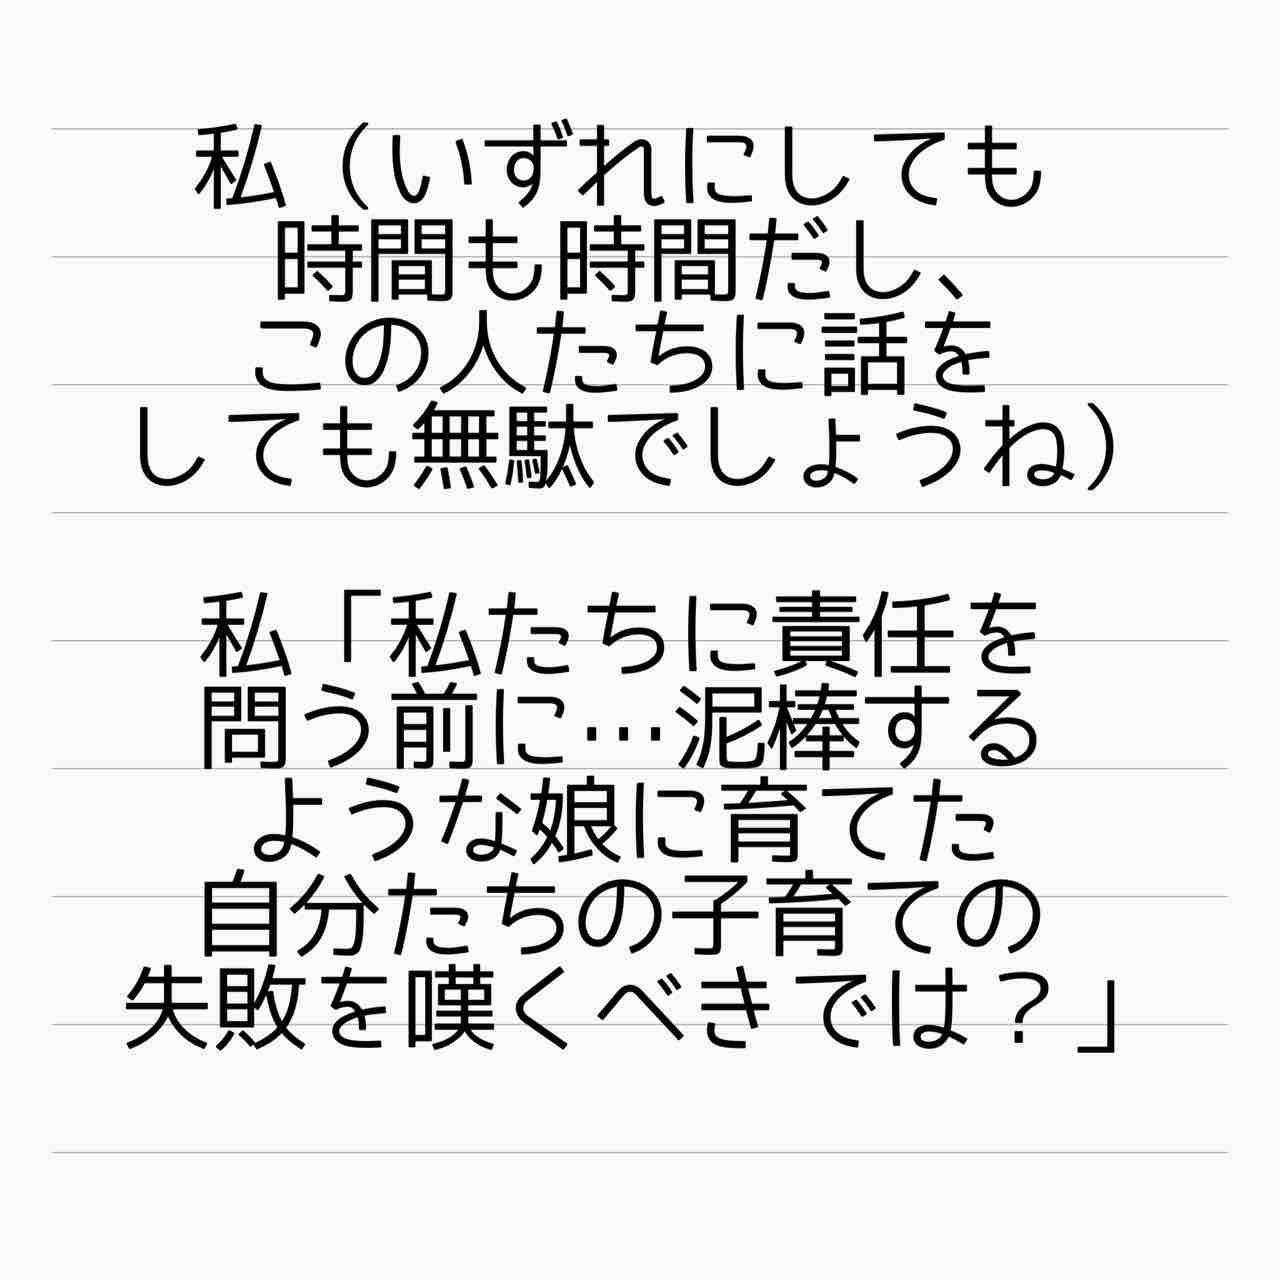 私（いずれにしても
時間も時間だし、
この人たちに話を
しても無駄でしょうね）
私「私たちに責任を
問う前に…泥棒する
ような娘に育てた
自分たちの子育ての
失敗を嘆くべきでは？」